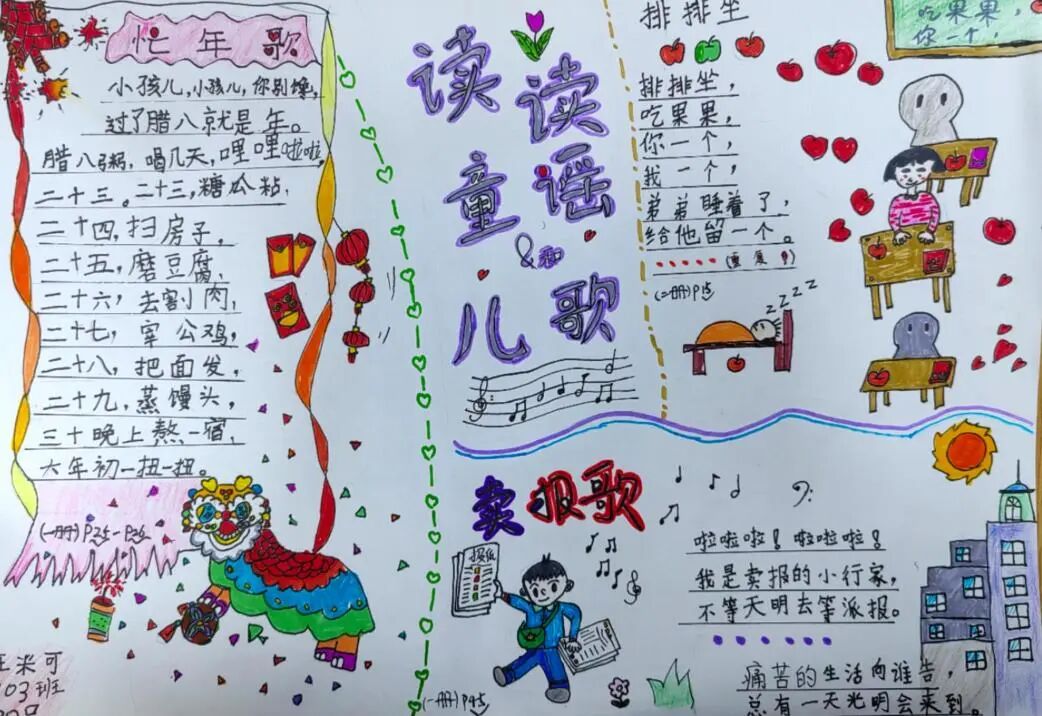 忙年歌
小孩儿,小孩儿,你别馋,
过了腊八就是年。
腊八粥,喝几天,哩哩啦啦,
二十三。二十三,糖瓜粘,
二十四,扫房子,
二十五,磨豆腐,
二十六,去割肉,
二十七,宰公鸡,
二十八,把面发,
二十九,蒸馒头,
三十晚上熬一宿,
六年初一扭一扭。
(一册)P25-P36
米可
03班
读读
童谣
&和
儿歌
排排坐
排排坐,
吃果果,
你一个,
我一个,
弟弟睡着了,
给他留一个。
......(重复)
(二册)P15
zzzz
吃果果,
你一个,
卖报歌
报纸
(一册)P45
啦啦啦!啦啦啦!
我是卖报的小行家,
不等天明去等派报。
......
痛苦的生活向谁告,
总有一天光明会来到。